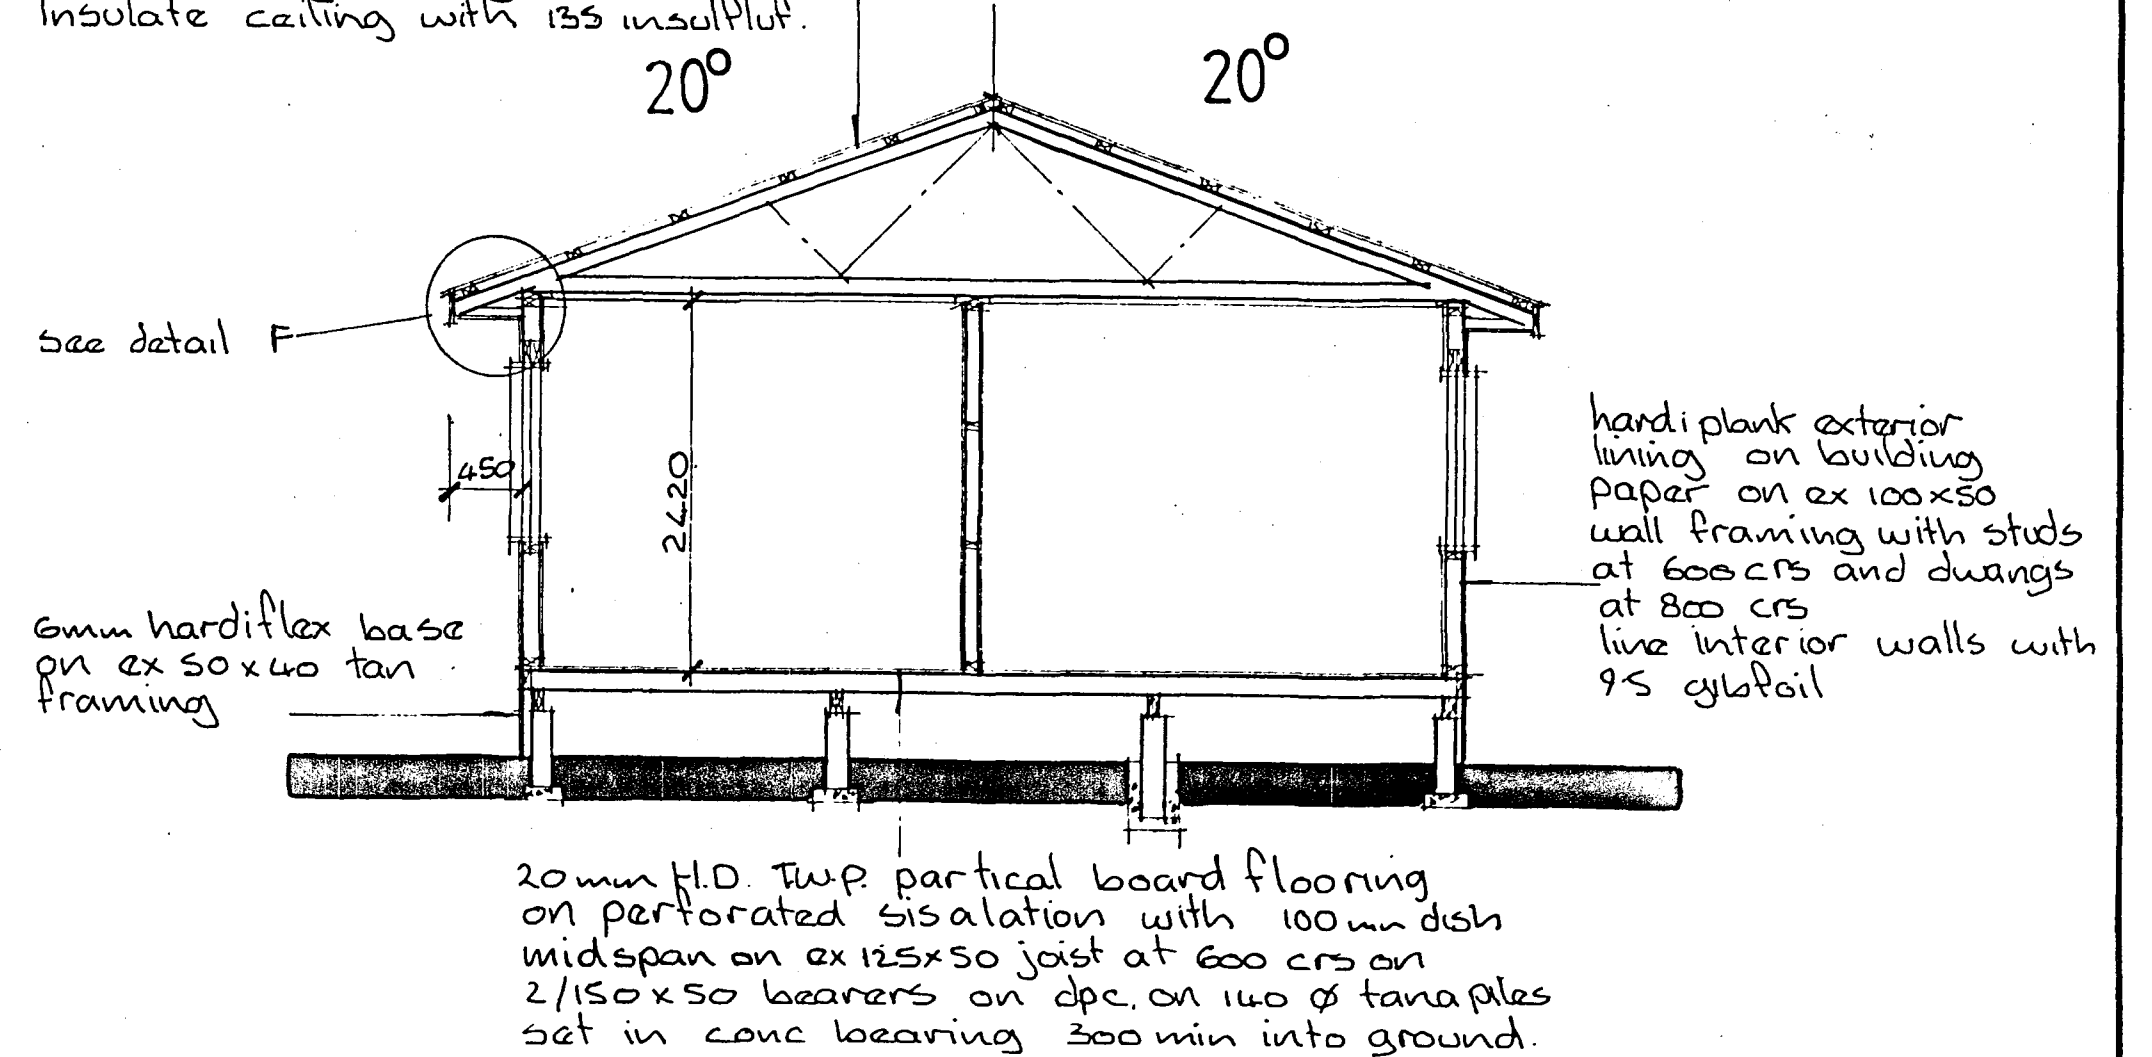 Insulate ceiling with 135 insulfluf.
20° 20°
see detail F
450
2420
hardiplank exterior
lining on building
paper on ex 100x50
wall framing with studs
at 600 crs and dwangs
at 800 crs
line interior walls with
95 gibfoil
6mm hardiflex base
on ex 50x40 tan
framing
20mm H.D. T.W.P. partical board flooring
on perforated sisalation with 100mm dish
midspan on ex 125x50 joist at 600 crs on
2/150x50 bearers on dpc. on 140 Ø tanapiles
set in conc bearing 300 min into ground.